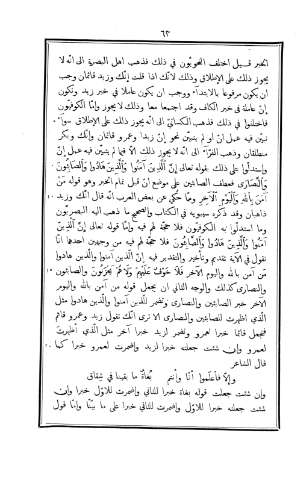 ٦٣
الخبر قسيل اختلف النحويّون في ذلك فذهب اهل البصرة الى انّه لا
يجوز ذلك على الاطلاق وذلك لانك اذا قلت إنّك وزيد قائمان وجب
ان يكون مرفوعا بالابتداء ووجب ان يكون عاملا في خبر زيد وتكون
إنّ عاملة في خبر الكاف وقد اجتمعا معا وذلك لا يجوز وامّا الكوفيّون
فاختلفوا في ذلك فذهب الكسائيّ الى انّه يجوز ذلك على الاطلاق سواء
تبيّن فيه عمل إنّ او لم يتبيّن نحو إنّ زيدا وعمرو قائمان وإنّك وبكر
منطلقان وذهب الفرّاء الى انّه لا يجوز ذلك الّا فيما لم يتبيّن فيه عمل إنّ
واستدلّوا على ذلك بقوله تعالى إنّ الّذين آمنوا والّذين هادوا والصّابئون
والنّصارى فعطف الصابئين على موضع إنّ قبل تمام الخبر وهو قوله من
آمن باللّه واليوم الآخر وممّا حكي عن بعض العرب انّه قال إنّك وزيد
ذاهبان وقد ذكره سيبويه في الكتاب والصحيح ما ذهب اليه البصريّون
وما استدلّ به الكوفيّون فلا حجّة لهم فيه وامّا قوله تعالى إنّ الّذين
آمنوا والّذين هادوا والصّابئون فلا حجّة لهم فيه من وجهين احدهما انّا
نقول في الآية تقديم وتأخير والتقدير فيه إنّ الّذين آمنوا والّذين هادوا
من آمن باللّه واليوم الآخر فلا خوف عليهم ولا هم يحزنون والصابئون
والنصارى كذلك والوجه الثاني ان يجعل قوله من آمن باللّه واليوم
الآخر خبر الصابئين والنصارى وتضمر للّذين آمنوا والّذين هادوا مثل
الذي اظهرت للصابئين والنصارى ألا ترى انّك تقول زيد وعمرو قائم
فتجعل قائما خبرا لعمرو وتضمر لزيد خبرا آخر مثل الذي اظهرت
لعمرو وإن شئت جعلته خبرا لزيد واضمرت لعمرو خبرا كما
قال الشاعر
وإلّا فاعلموا أنّا وأنتم بغاةٌ ما بقينا في شقاق
وإن شئت جعلت قوله بغاة خبرا للثاني واضمرت للاوّل خبرا وإن
شئت جعلته خبرا للاوّل واضمرت للثاني خبرا على ما بيّنّا وامّا قول